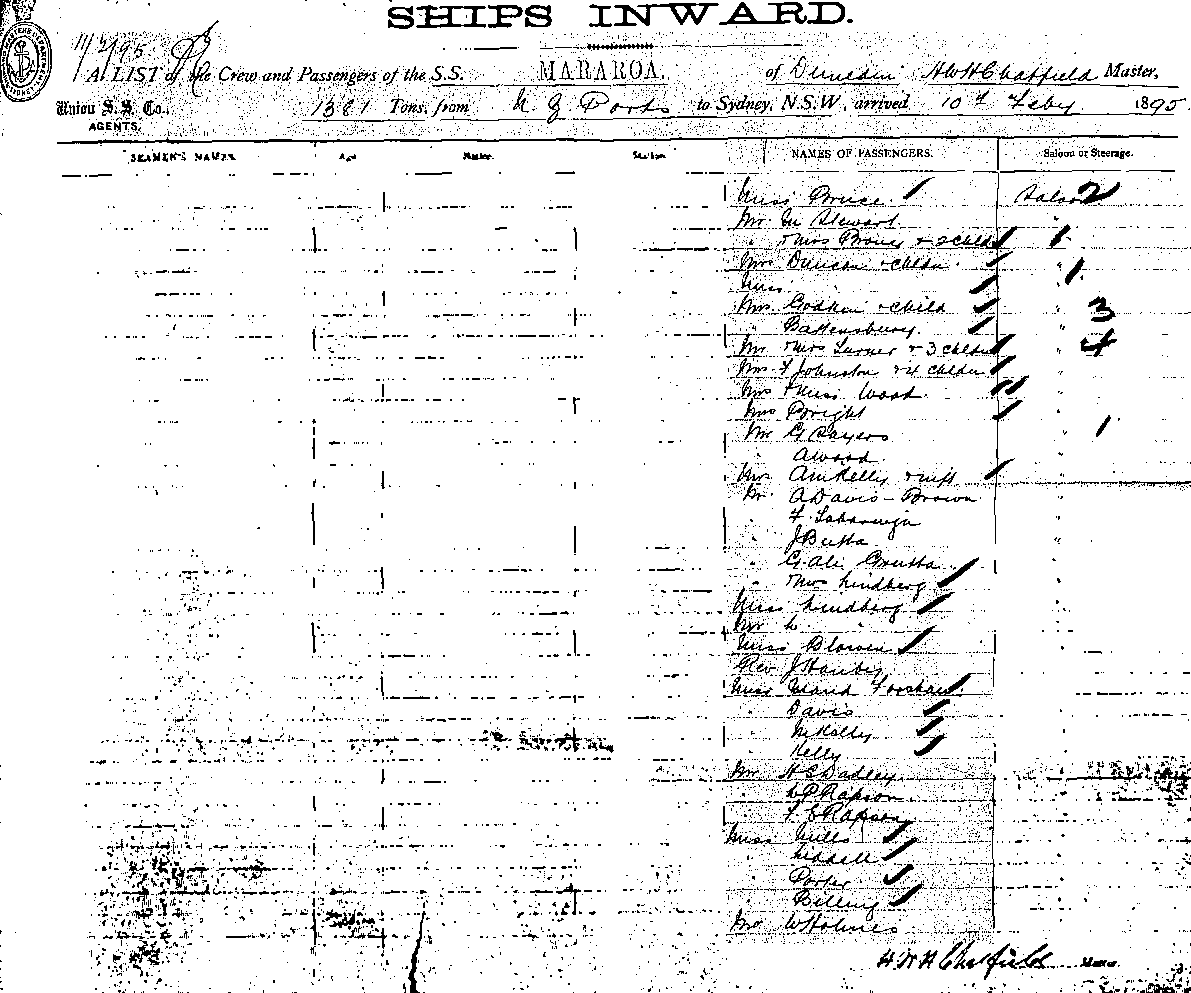 SHIPS INWARD.
11/2/95
A LIST of the Crew and Passengers of the S.S. MARAROA. of Dunedin HWHChatfield Master,
Union S. S. Co., 1381 Tons, from N. Z. Ports to Sydney, N.S.W., arrived 10th Feby 1895
AGENTS.
SEAMEN'S NAMES. Age Station. NAMES OF PASSENGERS. Saloon or Steerage.
Miss Bruce Saloon 2
Mr Stewart "
" & Mrs + 2 childn 1
Mrs Duncan + childn " 1
Miss "
Mrs + child " 3
" Battensbury "
Mr & Mrs Turner + 3 childn " 4
Mrs F Johnston + 4 childn "
Mrs & Miss Wood "
Mrs Bright "
Mr G Sayers " 1
" A Wood "
Mrs Kelly "
Mr. A Davis-Brown
" F.
" J Butta "
" G. Ali Grutta "
" & Mrs Lindberg "
Miss Lindberg "
Mr L "
Miss Blowen "
Rev J Hanby "
Miss Maud Forshaw "
" Davis "
" McKelly "
" Kelly "
Mr H S Dadley "
" L P Rapson "
" F. E Rapson "
Miss Mills "
" Liddell "
" Porter "
" Billing "
Mr W Holmes
H W H Chatfield Master.